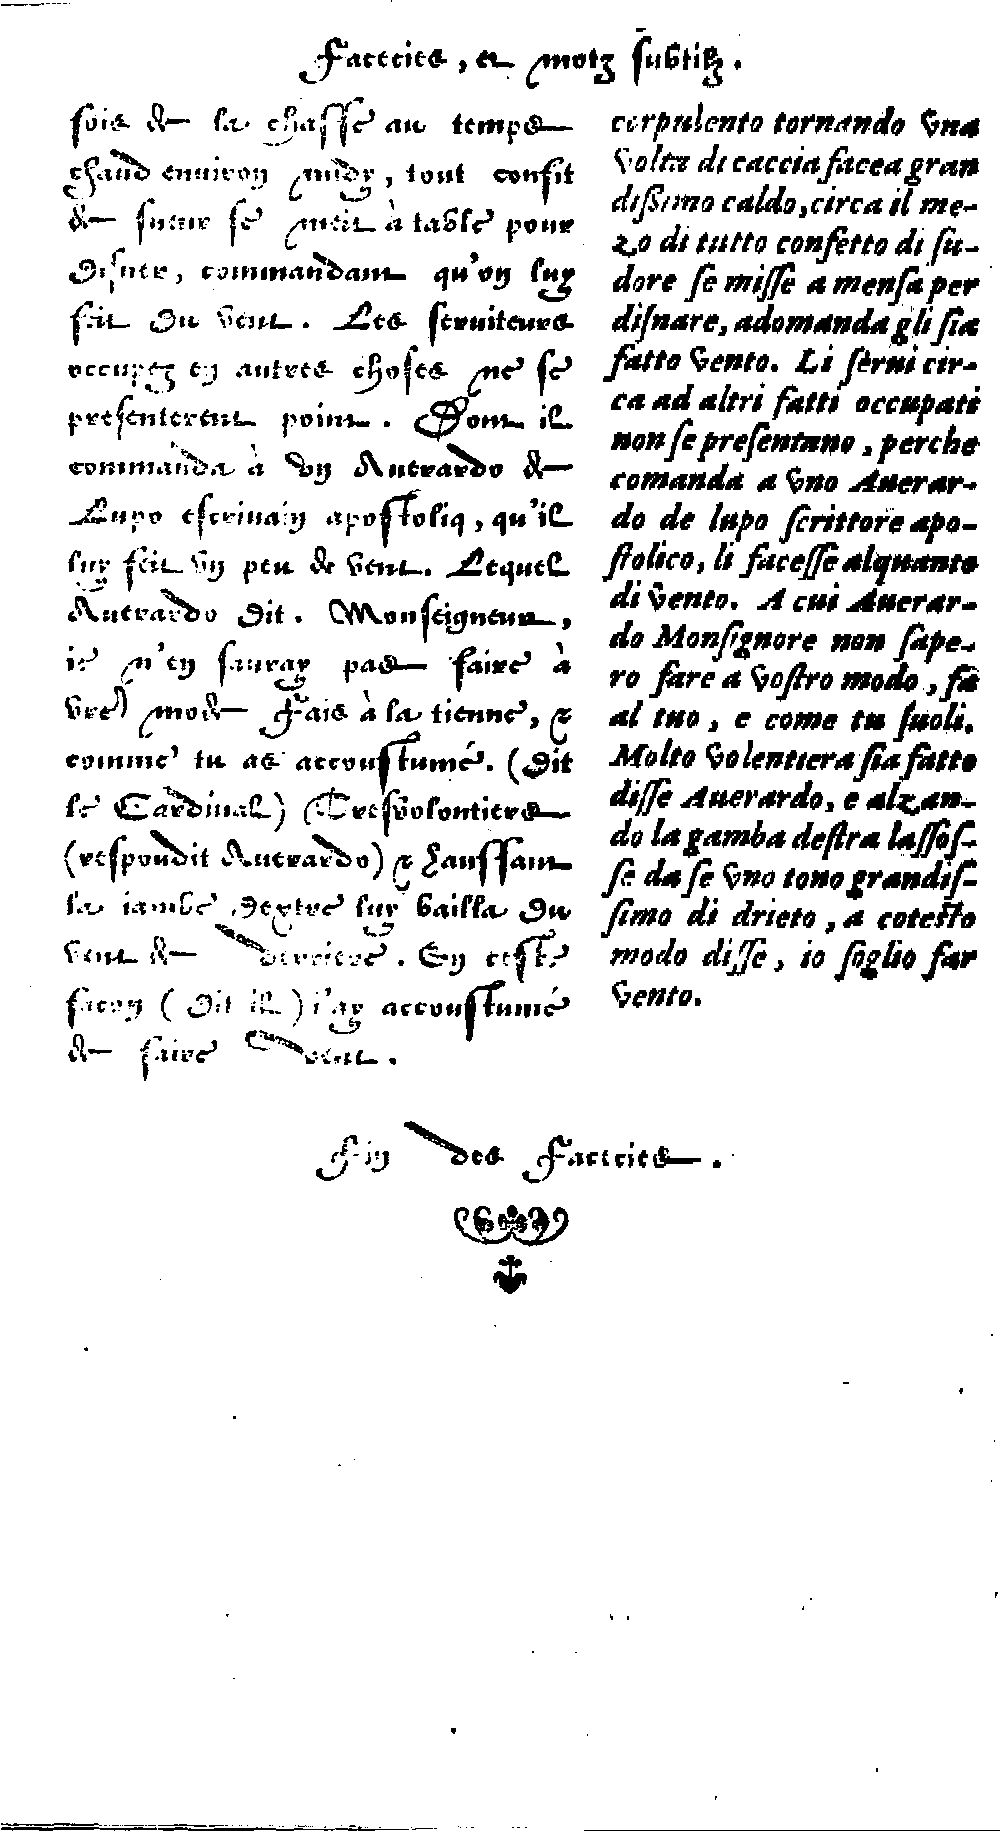 Faceties, et motz subtilz.
sois de la chasse au temps
chaud enuiron midy, tout confit
de sueur se meit à table pour
disner, commandant qu'on luy
feit du vent. Les seruiteurs
occupez en autres choses ne se
presenterent point. Dont il
commanda à vn Auerardo de
Lupo escriuain apostoliq, qu'il
luy feit vn peu de vent. Lequel
Auerardo dit. Monseigneur,
ie n'en sauray pas faire à
vre mode Fais à la tienne, &
comme tu as accoustumé. (dit
le Cardinal) Tresvolontiers
(respondit Auerardo) & haussant
la iambe dextre luy bailla du
vent de derriere. En ceste
facon (dit il) i'ay accoustumé
de faire vent.
corpulento tornando vna
volta di caccia facea gran
dißimo caldo, circa il me-
zo di tutto confetto di ſu-
dore ſe miſſe a menſa per
diſnare, adomanda gli ſia
fatto vento. Li ſerui cir-
ca ad altri fatti occupati
non ſe preſentano, perche
comanda a vno Auerar-
do de lupo ſcrittore apo-
ſtolico, li faceſſe alquanto
di vento. A cui Auerar-
do Monſignore non ſape-
ro fare a voſtro modo, fa
al tuo, e come tu ſuoli.
Molto volentiera ſia fatto
diſſe Auerardo, e alzan-
do la gamba deſtra laſſoſ-
ſe da ſe vno tono grandiſ-
ſimo di drieto, a coteſto
modo diſſe, io ſoglio far
vento.
Fin des Faceties.